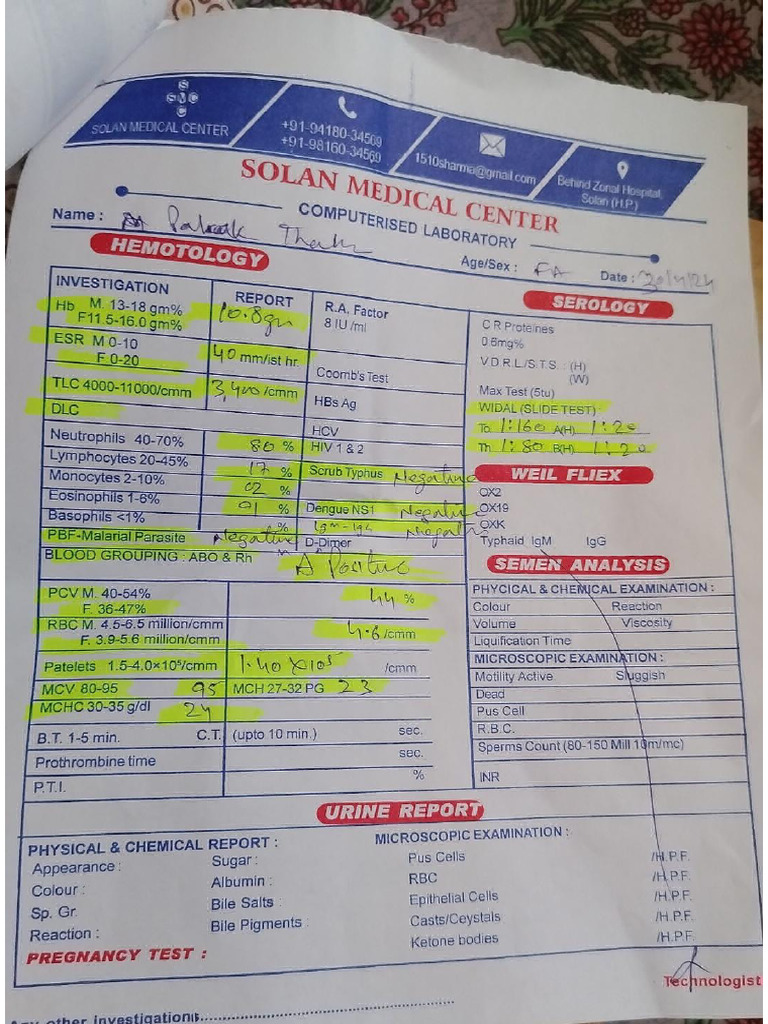 S
SMC
C
SOLAN MEDICAL CENTER
+91-94180-34569
+91-98160-34569
1510sharma@gmail.com
Behind Zonal Hospital,
Solan (H.P.)
SOLAN MEDICAL CENTER
COMPUTERISED LABORATORY
Name : Palak
Age/Sex : Date :
HEMOTOLOGY
INVESTIGATION REPORT
Hb M. 13-18 gm%
F11.5-16.0 gm% 10.8gm
ESR M 0-10
F 0-20 40 mm/ist hr.
TLC 4000-11000/cmm 3,400/cmm
DLC
Neutrophils 40-70% 80 %
Lymphocytes 20-45% 17 %
Monocytes 2-10% 02 %
Eosinophils 1-6% 01 %
Basophils <1% %
PBF-Malarial Parasite Negative
BLOOD GROUPING : ABO & Rh A Positive
R.A. Factor
8 IU /ml
Coomb's Test
HBs Ag
HCV
HIV 1 & 2
Scrub Typhus Negative
Dengue NS1 Negative
IgM-IgG Negative
D-Dimer
PCV M. 40-54%
F. 36-47% 44 %
RBC M. 4.5-6.5 million/cmm
F. 3.9-5.6 million/cmm 4.6/cmm
Patelets 1.5-4.0×10⁵/cmm 1.40×10⁵ /cmm
MCV 80-95 95 MCH 27-32 PG 23
MCHC 30-35 g/dl 24
B.T. 1-5 min. C.T. (upto 10 min.) sec.
Prothrombine time sec.
P.T.I. %
SEROLOGY
C R Proteines
0.6mg%
V.D.R.L/S.T.S. : (H)
(W)
Max Test (5tu)
WIDAL (SLIDE TEST)
To 1:160 A(H) 1:20
Th 1:80 B(H) 1:20
WEIL FLIEX
OX2
OX19
OXK
Typhaid IgM IgG
SEMEN ANALYSIS
PHYCICAL & CHEMICAL EXAMINATION :
Colour Reaction
Volume Viscosity
Liquification Time
MICROSCOPIC EXAMINATION :
Motility Active Sluggish
Dead
Pus Cell
R.B.C.
Sperms Count (80-150 Mill 10m/mc)
INR
URINE REPORT
PHYSICAL & CHEMICAL REPORT :
Appearance : Sugar :
Colour : Albumin :
Sp. Gr. Bile Salts :
Reaction : Bile Pigments :
PREGNANCY TEST :
MICROSCOPIC EXAMINATION :
Pus Cells /H.P.F.
RBC /H.P.F.
Epithelial Cells /H.P.F.
Casts/Ceystals /H.P.F.
Ketone bodies /H.P.F.
Technologist
Any other investigations